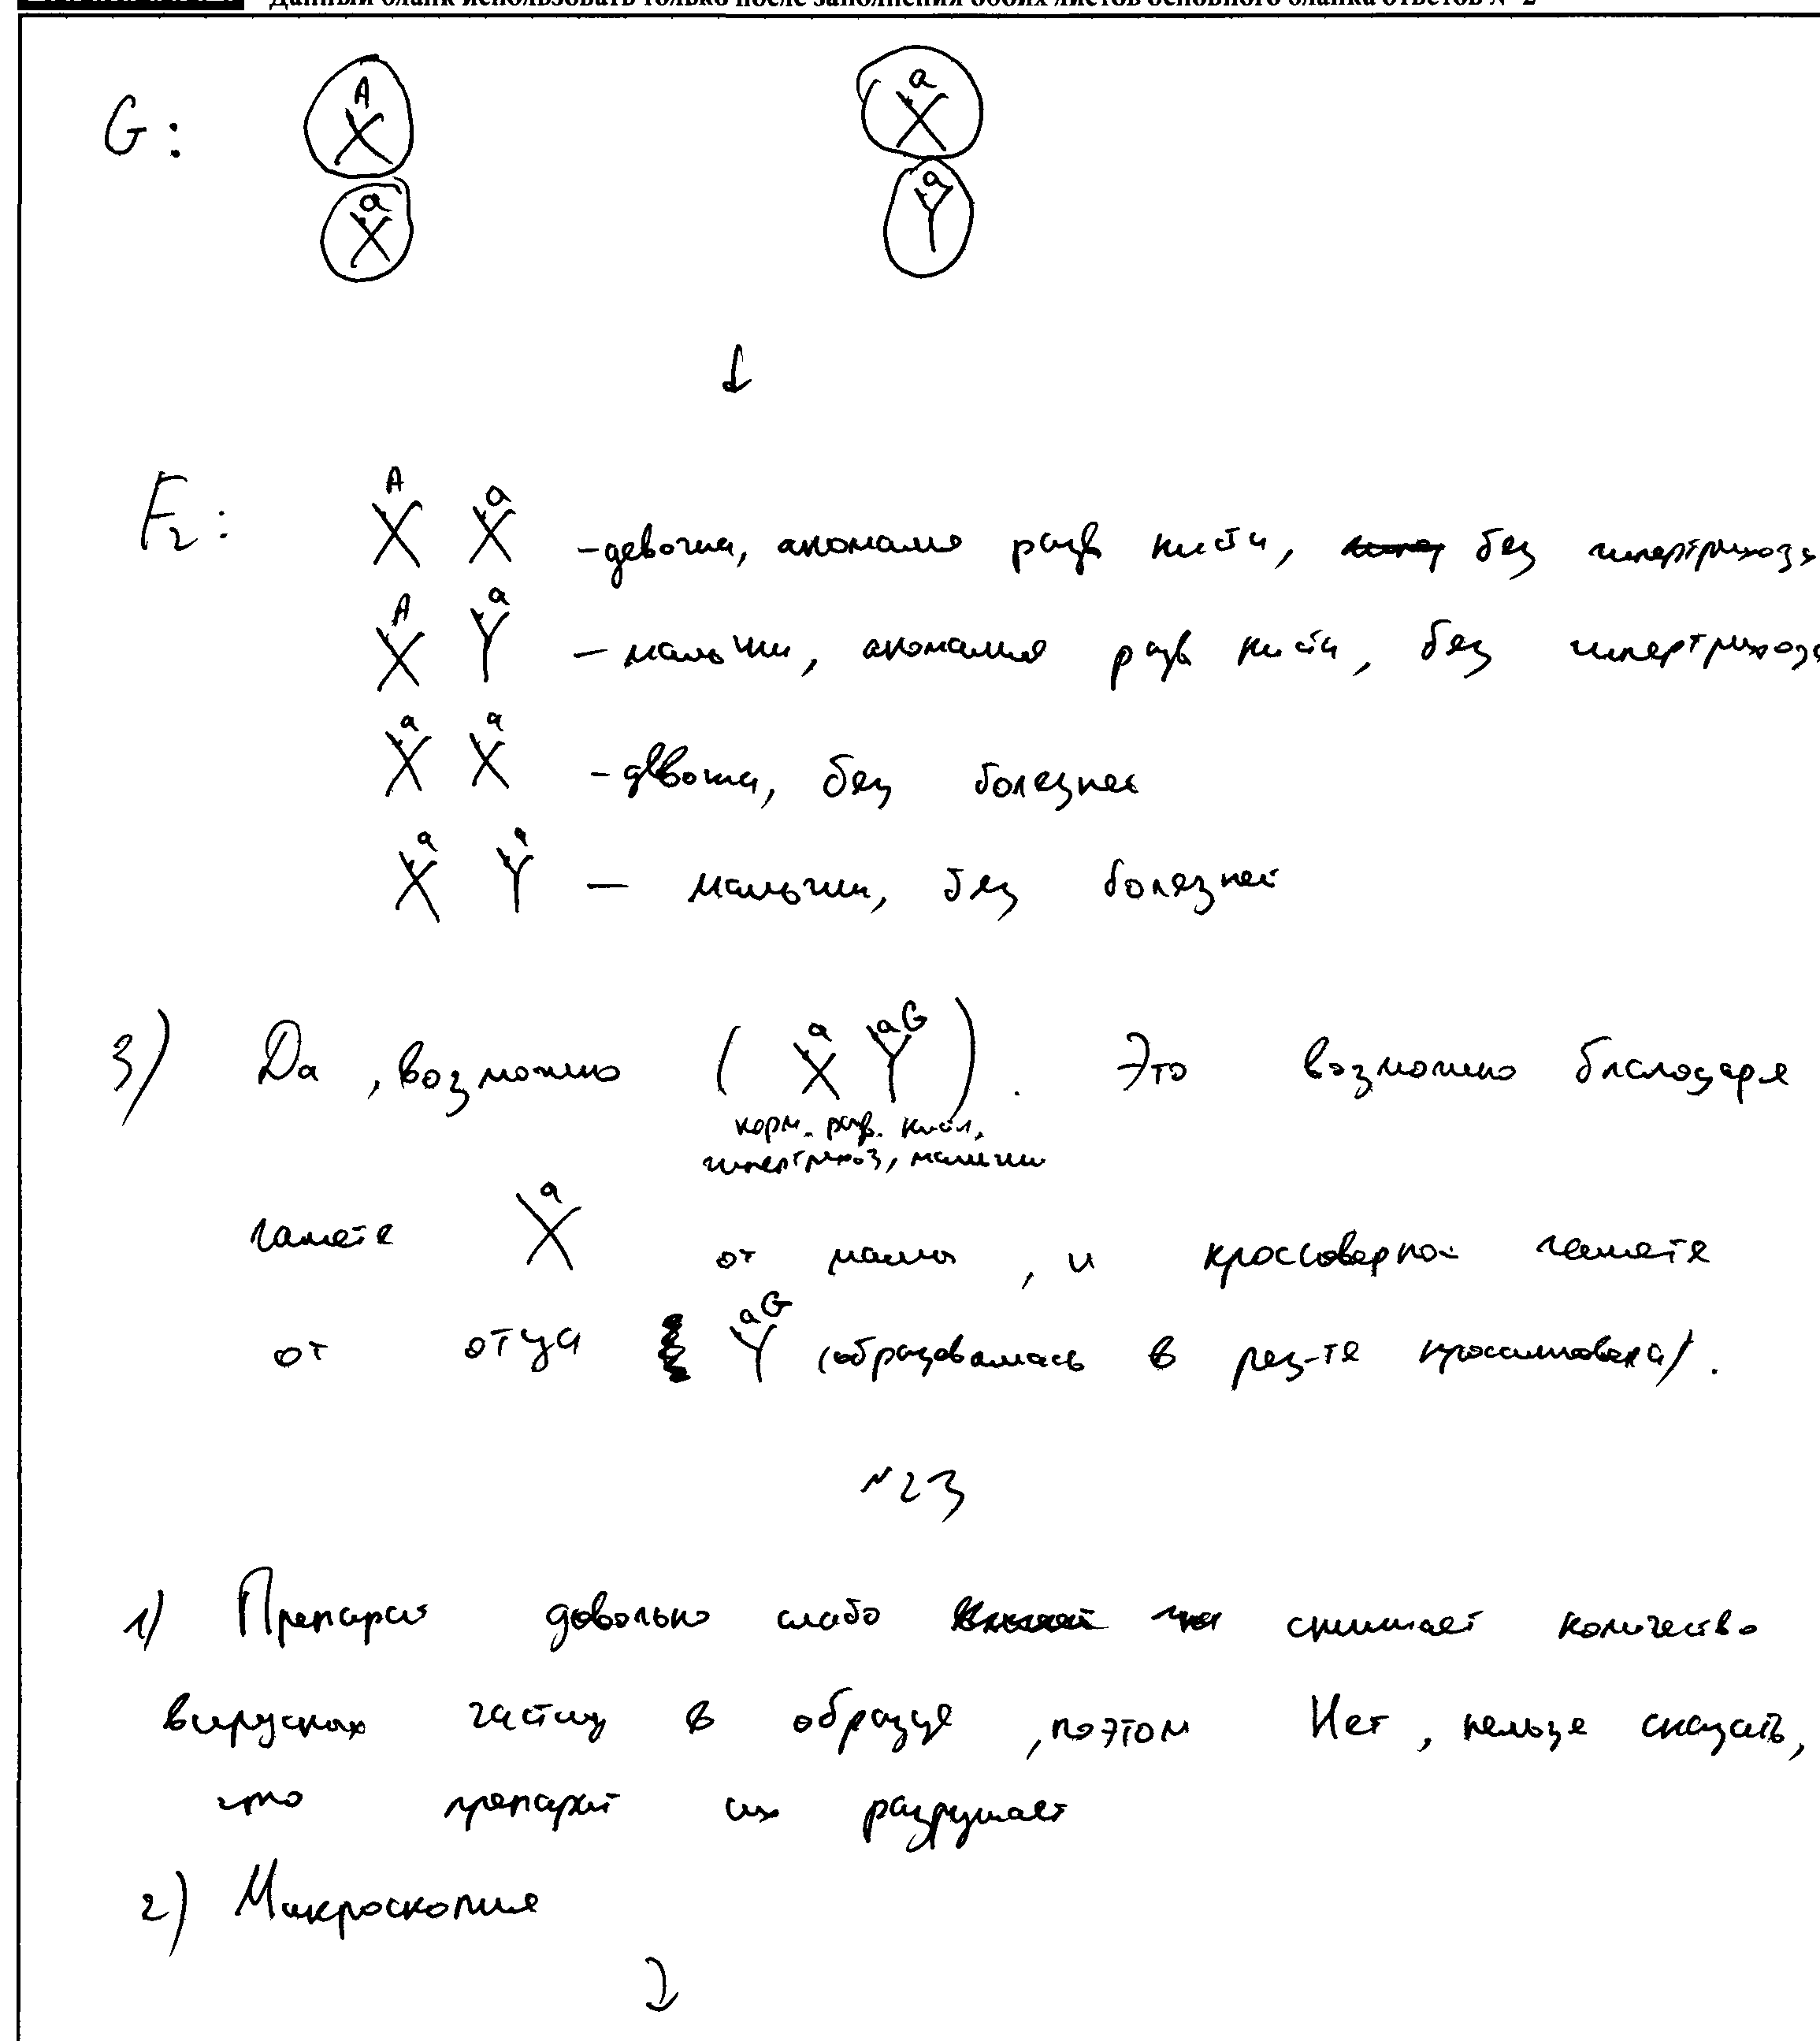 Данный бланк использовать только после заполнения обоих листов основного бланка ответов № 2
G: X^A X^a X^a Y^a
↓
F₂: X^A X^a - девочка, аномалия разв кисти, без гипертрихоза
X^A Y^a — мальчик, аномалия разв кисти, без гипертрихоза
X^a X^a - девочка, без болезней
X^a Y^a — мальчик, без болезней
3) Да, возможно (X^a Y^aG). Это возможно благодаря
норм. разв. кисти,
гипертрихоз, мальчик
гамете X^a от мамы, и кроссоверной гамете
от отца Y^aG (образовалась в рез-те кроссинговера).
№23
1) Препарат довольно слабо снижает количество
вирусных частиц в образце, поэтом Нет, нельзя сказать,
что препарат их разрушает
2) Микроскопия